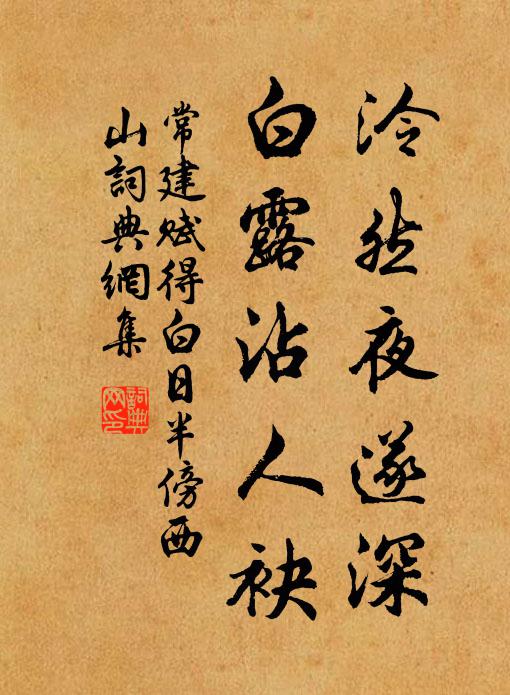 泠然夜遂深
白露沾人袂
常建赋得白日半傍西
山詞典網集
詞典网印